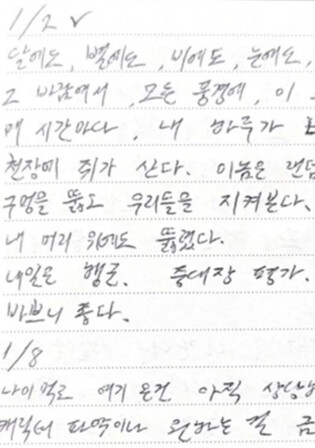 1/2 ✓
달에도, 별에도, 비에도, 눈에도,
그 바람에서, 모든 풍경에, 이
매 시간마다, 내 하루가
천장에 쥐가 산다. 이놈은 랜덤
구멍을 뚫고 우리들을 지켜본다.
내 머리 위에도 뚫렸다.
내일은 행군. 중대장 평가.
바쁘니 좋다.
1/8
나이먹고 여기 온건 아직
원하는 걸 금